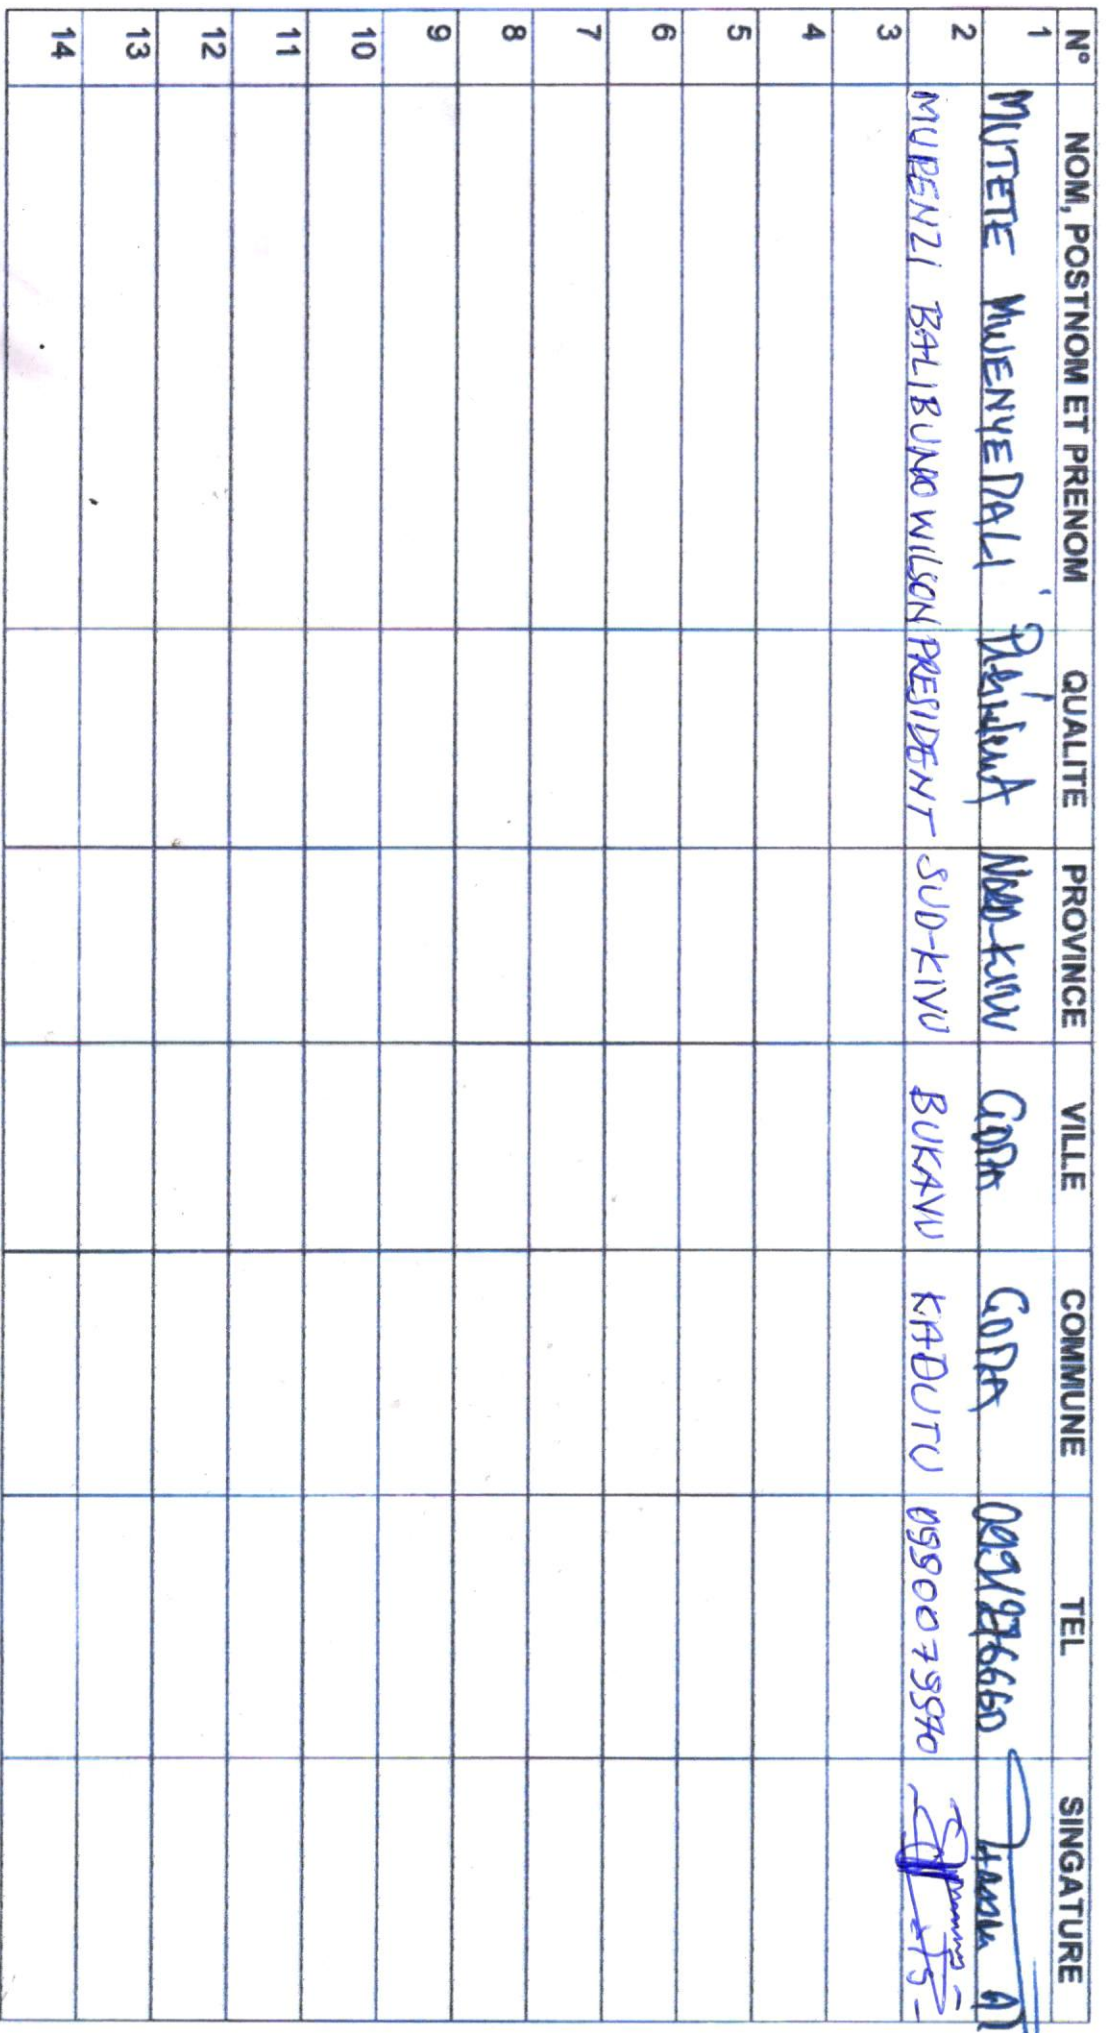 N° NOM, POSTNOM ET PRENOM QUALITE PROVINCE VILLE COMMUNE TEL SINGATURE
1 MUTETE MWENYEDALI Président NORD-KIVU GOMA GOMA
2 MUPENZI BALIBUNO WILSON PRESIDENT SUD-KIVU BUKAVU KADUTU 0990079970
3
4
5
6
7
8
9
10
11
12
13
14